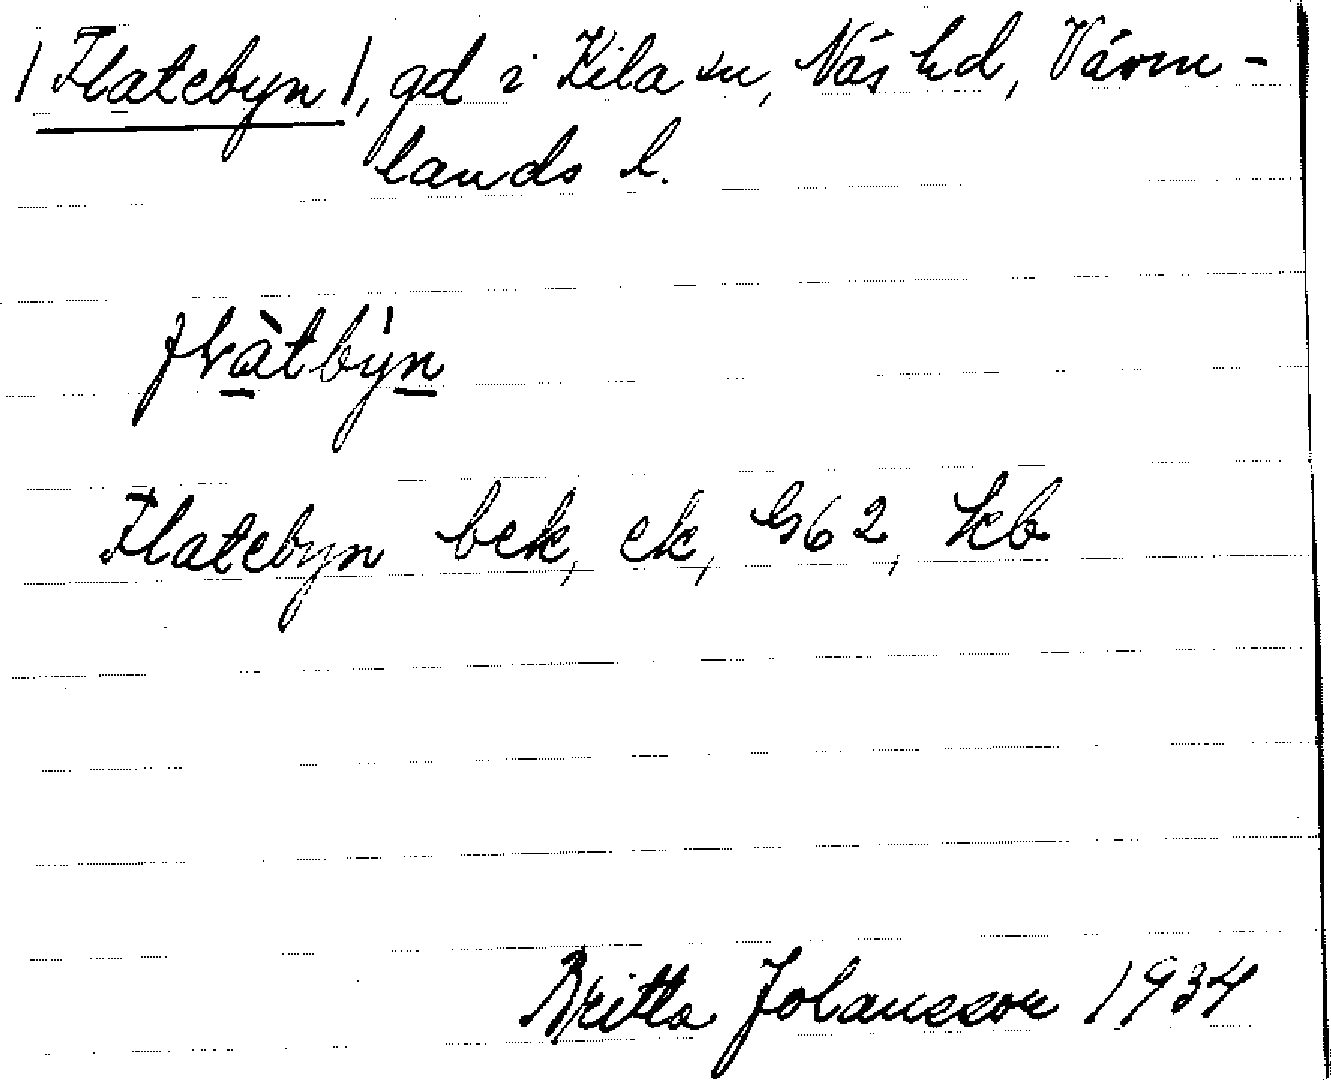 /Flatebyn/, gd i Kila sn, Näs hd, Värm-
lands l.
flàtbýn
Flatebyn bek, ek, G62, kb
Britta Johansson 1934